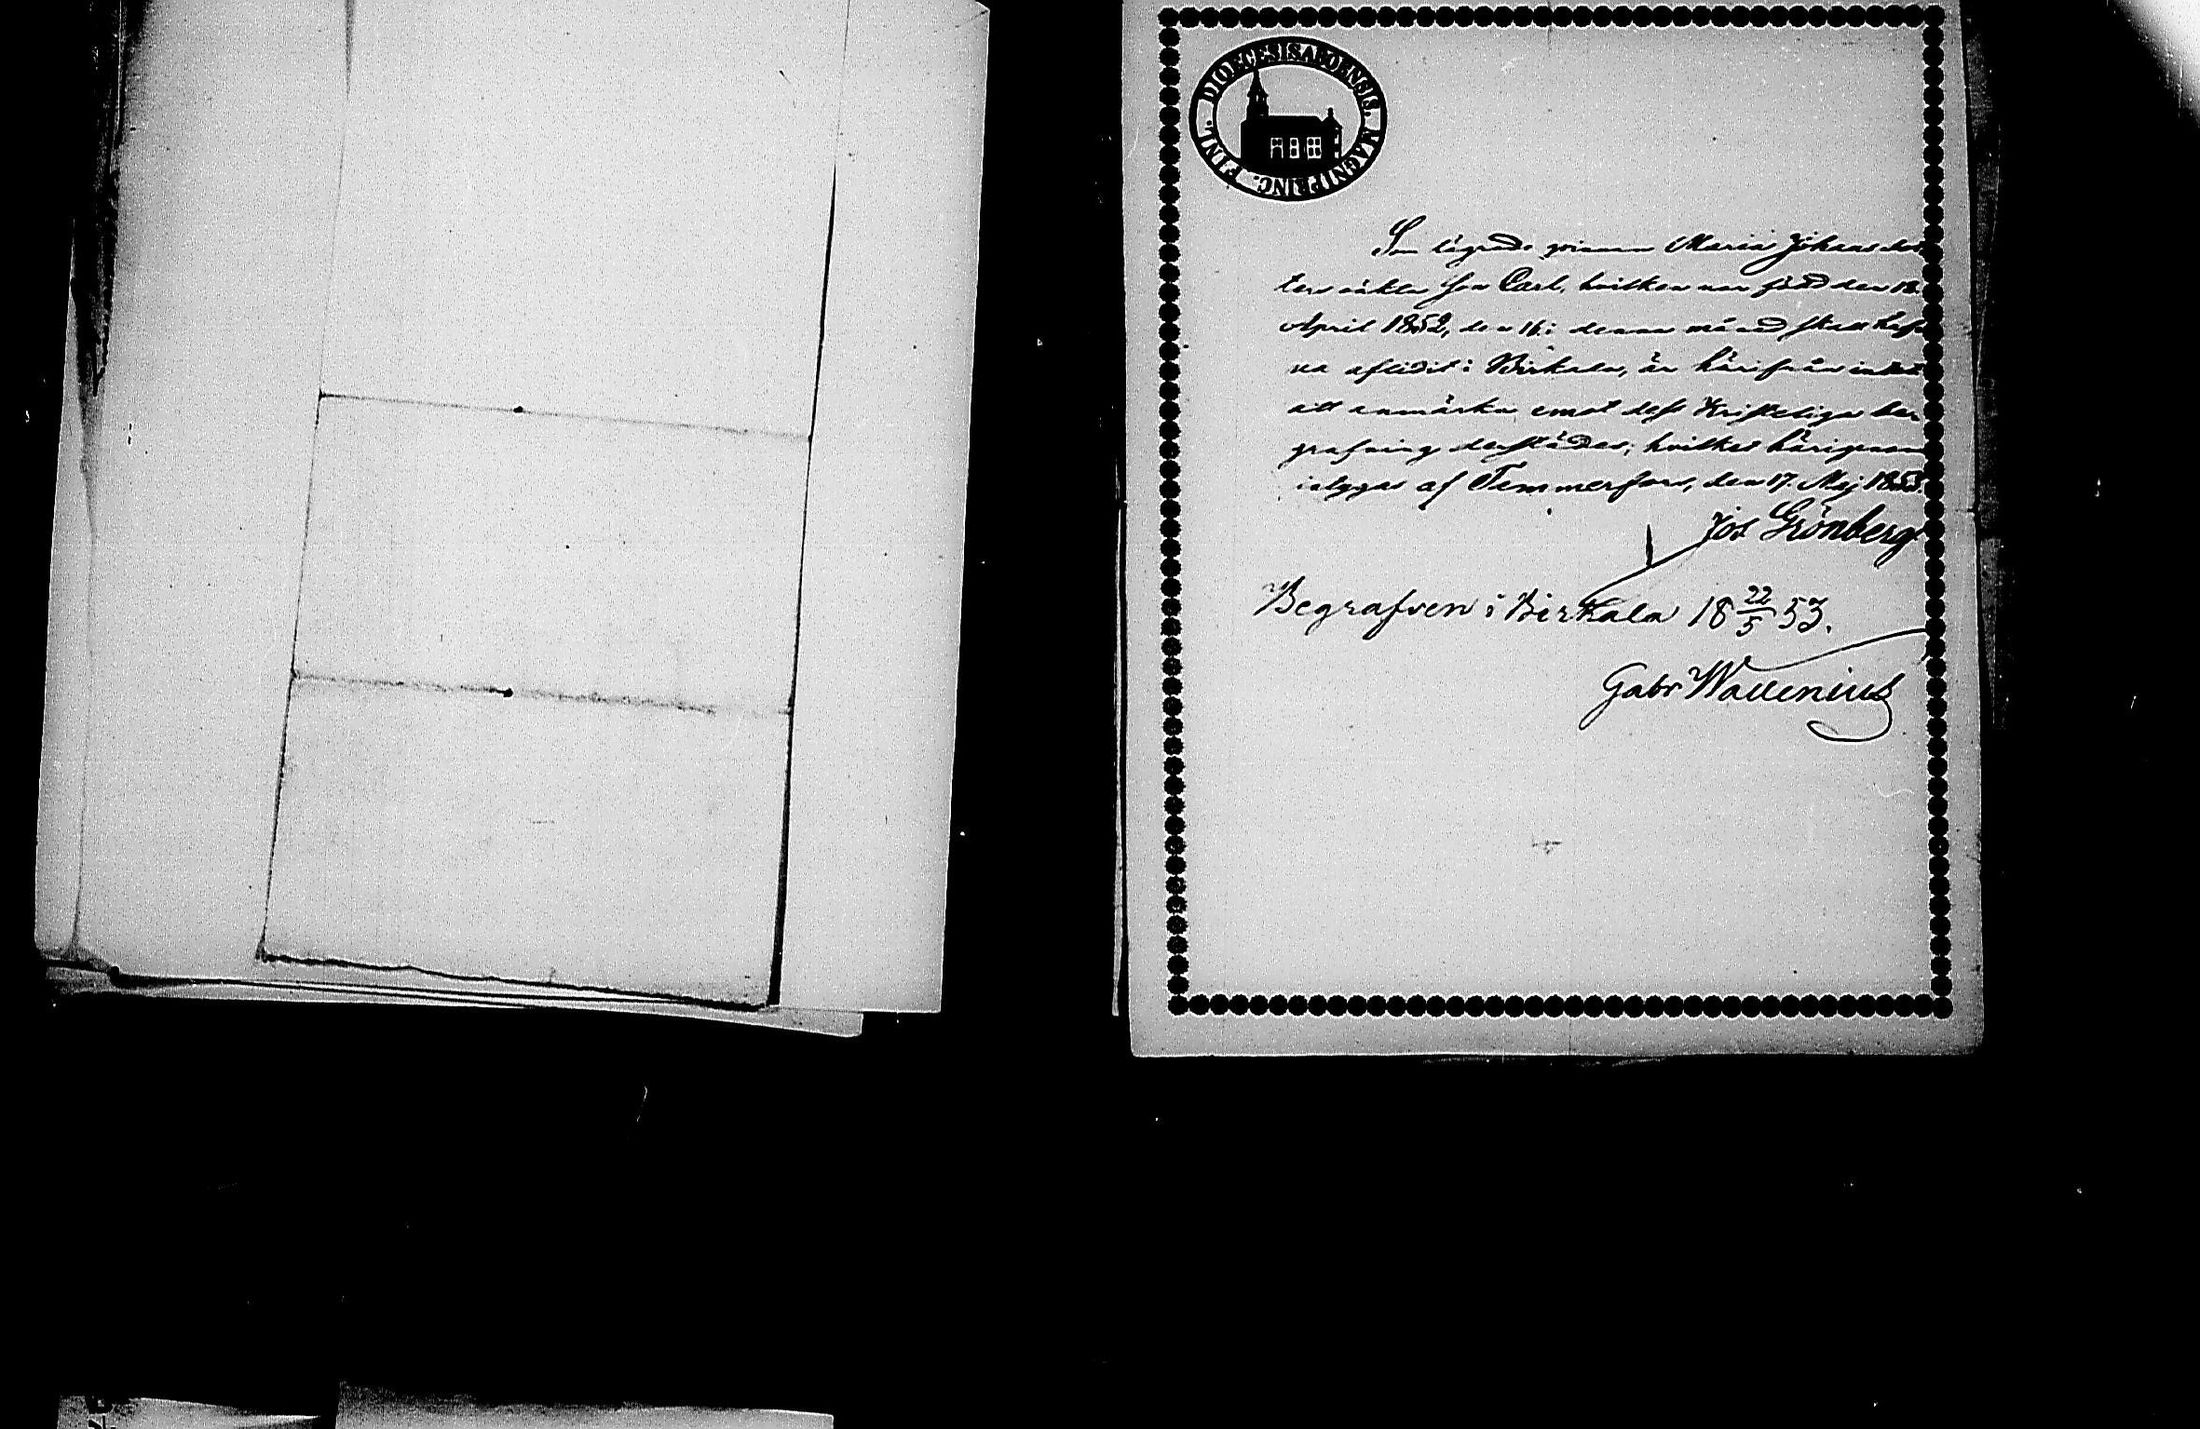 DIOECESIS ABOENSIS. MAGNI PRINC. FINL.
Som lägrade qvinnan Maria Johansdot
ters oäkta son Carl, hvilken var född den 18
April 1852, den 16 i denna månad skall haf
va aflidit i Birkala, är härifrån intet
att anmärka emot dess Kristeliga be
grafning derstädes; hvilket härigenom
intygas af Tammerfors, den 17. Maj 1853.
Jos Grönberg
Begrafven i Birkala 18 22/5 53.
Gabr Wallenius